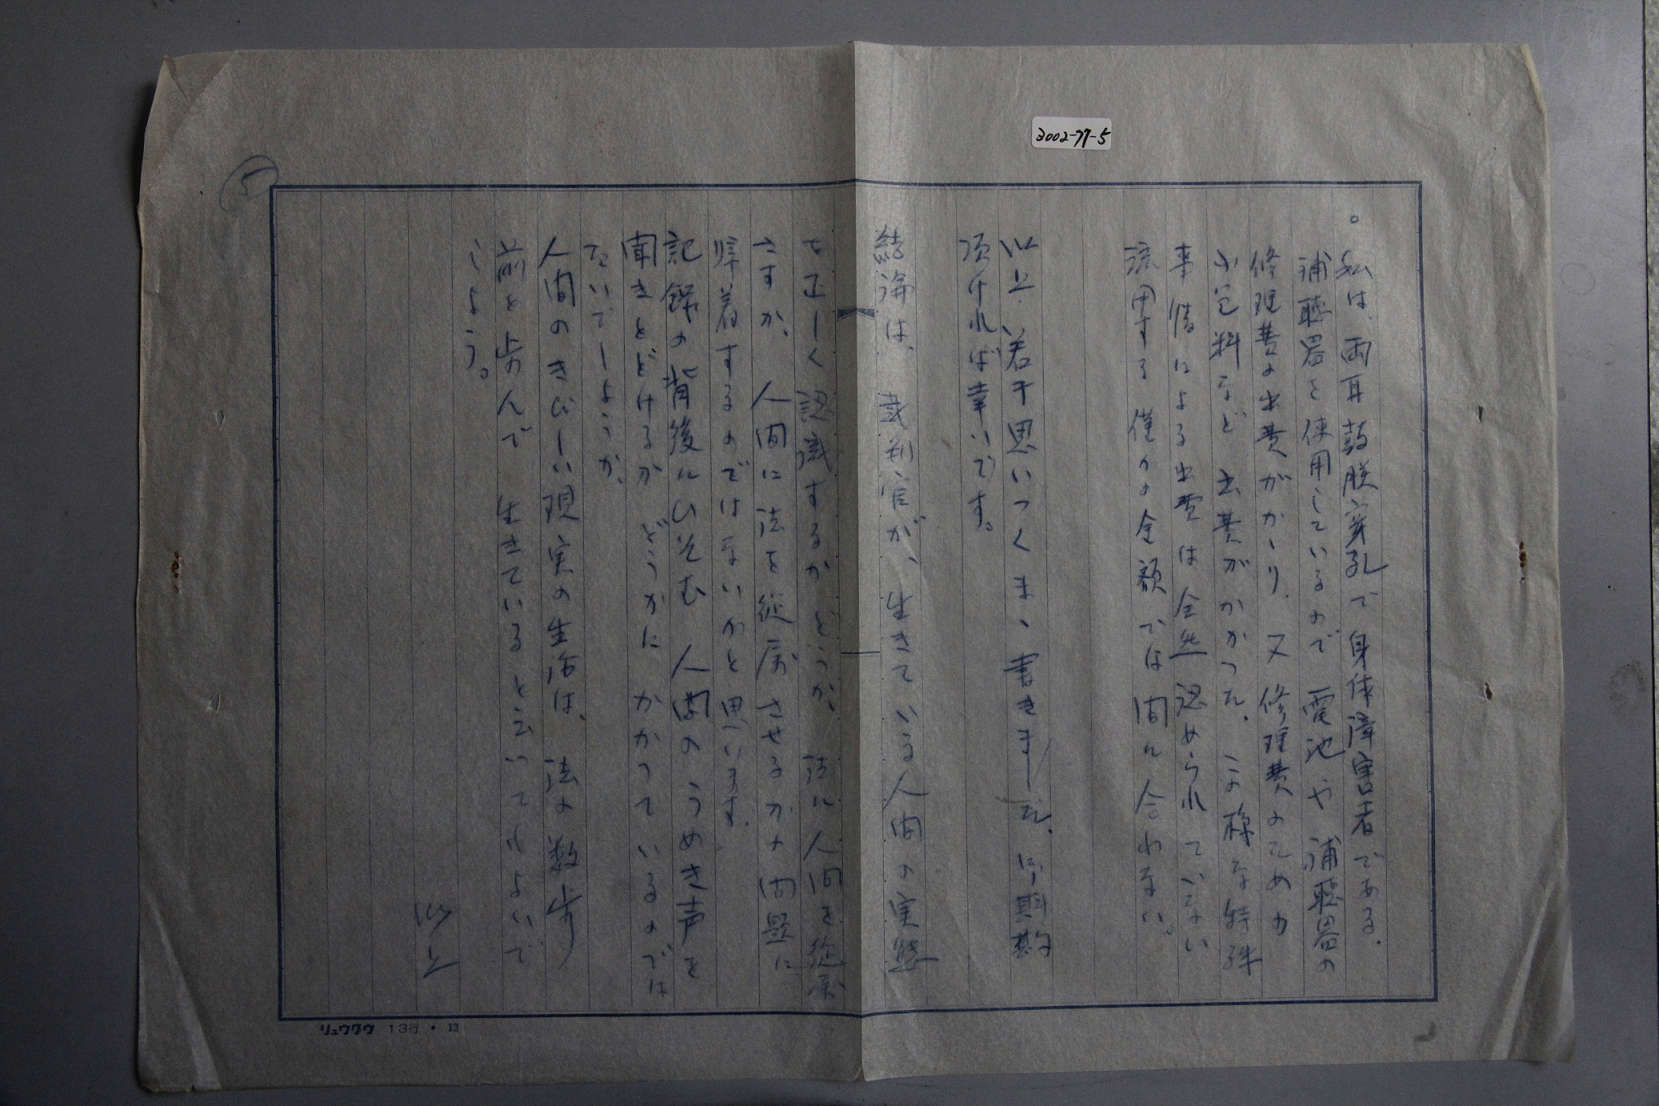 2002-77-5
5
。私は、両耳鼓膜穿孔で身体障害者である。
補聴器を使用しているので電池や補聴器の
修理費の出費がかゝり、又修理費のための
小包料など出費がかかつた。この様な特殊
事情による出費は全然認められていない
流用する僅かの金額では間に合わない。
以上、若干思いつくまゝ書きました。
頂ければ幸いです。
結論は、裁判官が、生きている人間の実態
を正しく認識するかどうか、法に人間を従属
さすか、人間に法を従属させるかの問題に
帰着するのではないかと思います。
記録の背後にひそむ人間のうめき声を
聞きとどけるかどうかにかかつているのでは
ないでしようか。
人間のきびしい現実の生活は、法の数歩
前を歩んで生きていると云つてもよいで
しよう。
以上
リュウグウ 13行・